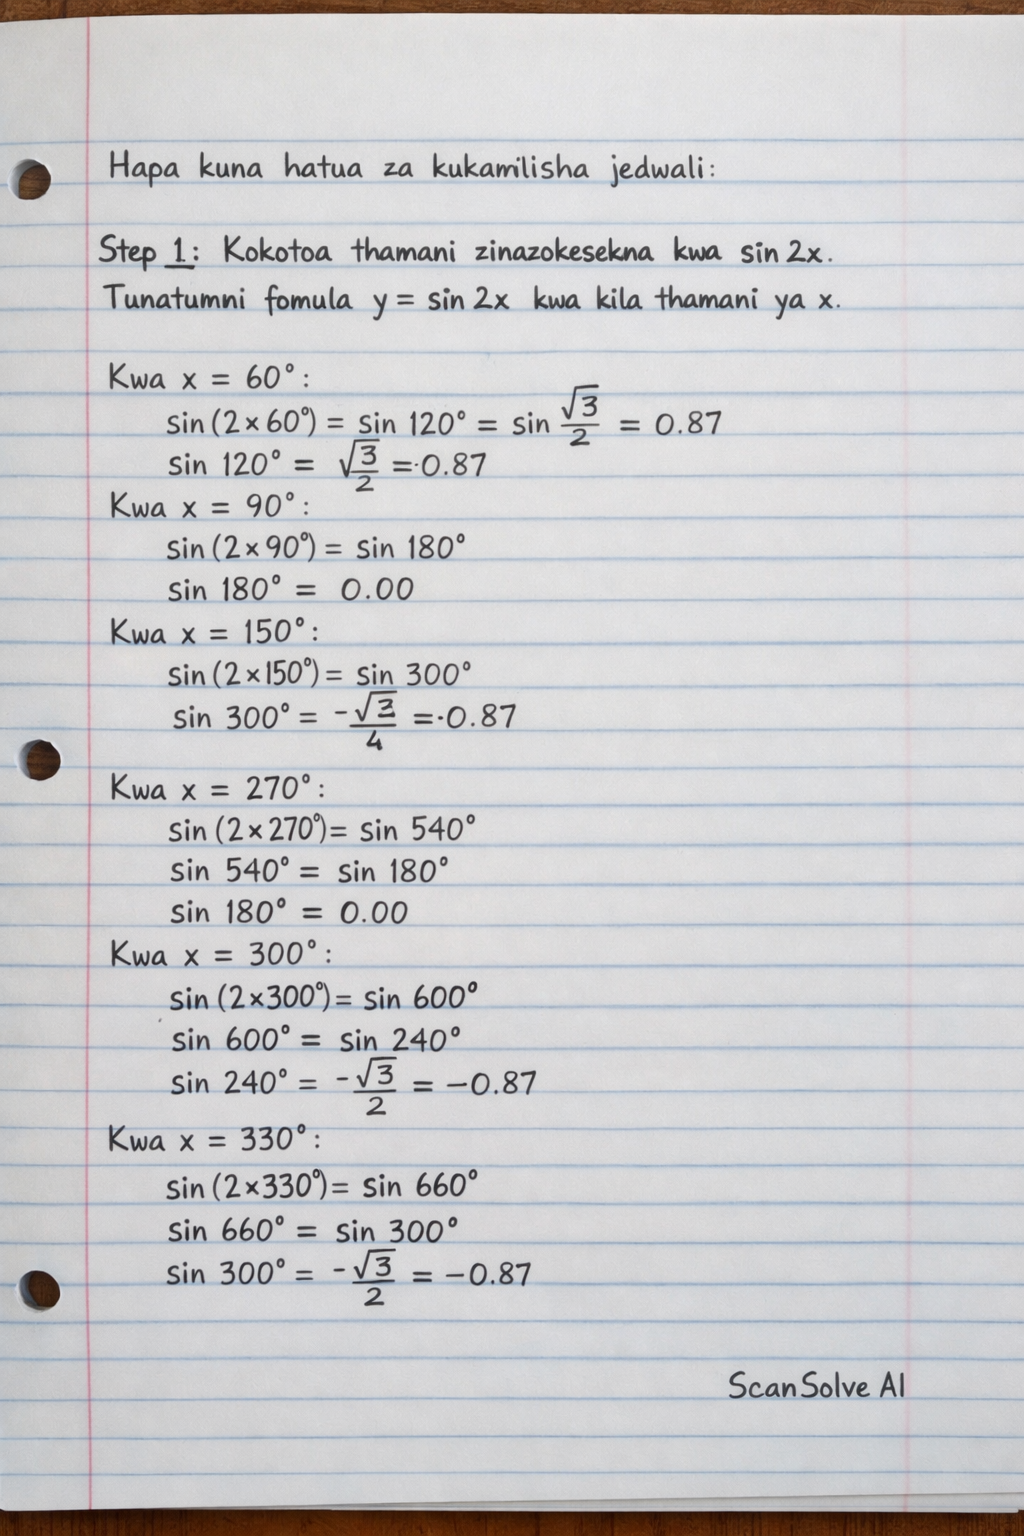 Hapa kuna hatua za kukamilisha jedwali:
Step 1: Kokotoa thamani zinazokesekna kwa sin 2x.
Tunatumni fomula y = sin 2x kwa kila thamani ya x.
Kwa x = 60°:
sin (2 × 60°) = sin 120° = sin √3/2 = 0.87
sin 120° = √3/2 =·0.87
Kwa x = 90°:
sin (2 × 90°) = sin 180°
sin 180° = 0.00
Kwa x = 150°:
sin (2 × 150°) = sin 300°
sin 300° = -√3/4 =·0.87
Kwa x = 270°:
sin (2 × 270°) = sin 540°
sin 540° = sin 180°
sin 180° = 0.00
Kwa x = 300°:
sin (2 × 300°) = sin 600°
sin 600° = sin 240°
sin 240° = -√3/2 = −0.87
Kwa x = 330°:
sin (2 × 330°) = sin 660°
sin 660° = sin 300°
sin 300° = -√3/2 = −0.87
ScanSolve AI